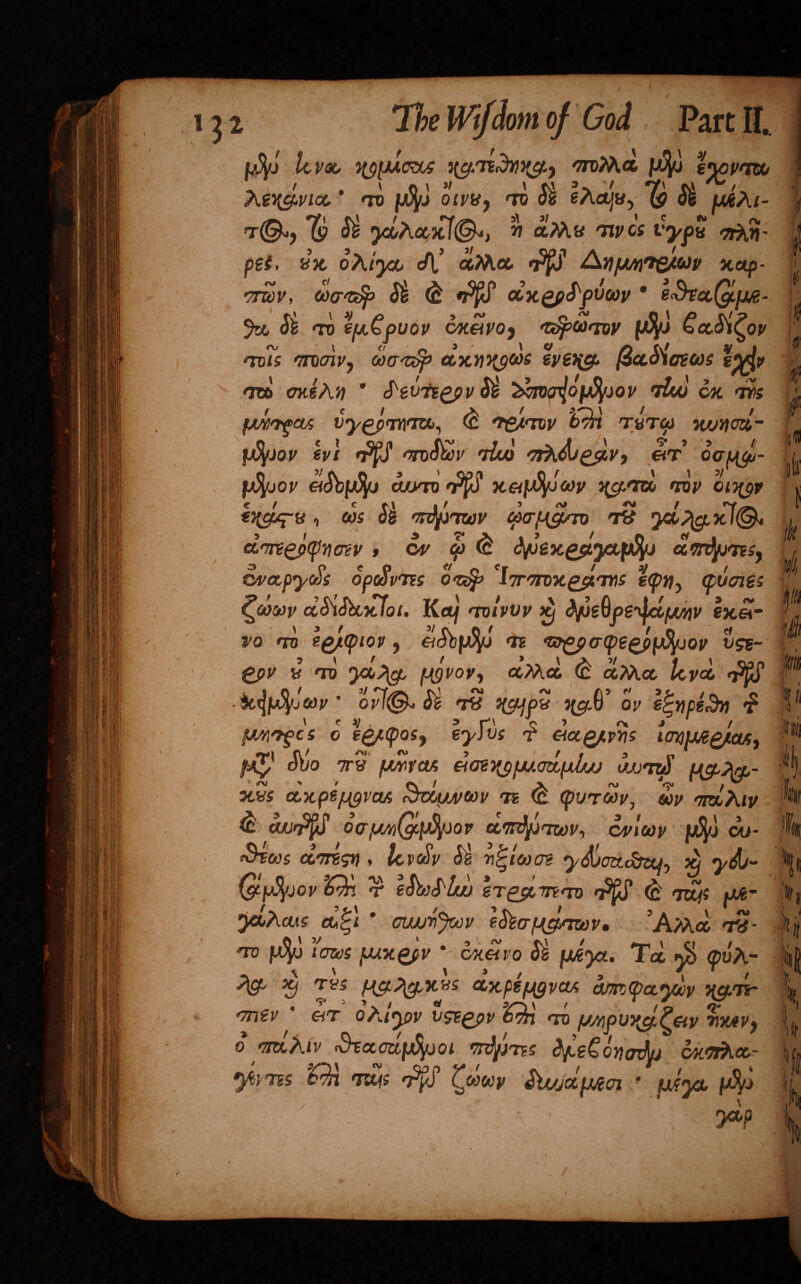 132 The Wisdom of God Part II.
μὲν ἱνα κομίσας κατέθηκα, πολλὰ μὲν ἔχοντα
λεκάνια· τὸ μὲν οἴνου, τὸ δὲ ἐλαίου, τὸ δὲ μέλι-
τος, τὸ δὲ γάλακτος, ἢ ἄλλου τινὸς ὑγροῦ πλῆ-
ρες, οὐκ ὀλίγα δ' ἄλλα τῶν Δημητρίων καρ-
πῶν, ὥσπερ δὲ καὶ τῶν ἀκροδρύων· ἐθεασάμε-
θα δὲ τὸ ἔμβρυον ἐκεῖνο, πρῶτον μὲν βαδίζον
τοῖς ποσίν, ὥσπερ ἀκηκοὼς ἕνεκα βαδίσεως ἔχειν
τὰ σκέλη· δεύτερον δὲ ἀποσειόμενον τὴν ἐκ τῆς
μήτρας ὑγρότητα, καὶ τρίτον ἐπὶ τούτῳ κνησά-
μενον ἑνὶ τῶν ποδῶν τὴν πλευρὰν, εἶτ' ὀσμώ-
μενον εἴδομεν αὐτὸ τῶν κειμένων κατὰ τὸν οἶκον
ἑκάστου, ὡς δὲ πάντων ὠσμᾶτο τοῦ γάλακτος
ἀπερρόφησεν, ἐν ᾧ καὶ ἀνεκράγαμεν ἅπαντες,
ἐναργῶς ὁρῶντες ὅπερ Ἱπποκράτης ἔφη, φύσιες
ζώων ἀδίδακτοι. Καὶ τοίνυν καὶ ἀνεθρεψάμην ἐκεῖ-
νο τὸ ἐρίφιον, εἴδομέν τε προσφερόμενον ὕστε-
ρον οὐ τὸ γάλα μόνον, ἀλλὰ καὶ ἄλλα ἱνὰ τῶν
κειμένων· ὄντος δὲ τοῦ καιροῦ καθ' ὃν ἐξῃρέθη τῆς
μητρὸς ὁ ἔριφος, ἐγγὺς τῆς ἐαρινῆς ἰσημερίας,
μετὰ δύο που μῆνας εἰσεκομίσαμεν αὐτῷ μαλα-
κοὺς ἀκρέμονας θάμνων τε καὶ φυτῶν, ὧν πάλιν
καὶ αὐτῶν ὀσμησάμενον ἁπάντων, ἐνίων μὲν εὐ-
θέως ἀπέστη, ἱνῶν δὲ ἠξίωσε γεύσασθαι, καὶ γευ-
σάμενον ἐπὶ τὴν ἐδωδὴν ἐτράπετο τῶν καὶ ταῖς με-
γάλαις αἰξὶ· συνήθων ἐδεσμάτων. Ἀλλὰ τοῦ-
το μὲν ἴσως μικρόν· ἐκεῖνο δὲ μέγα. Τὰ γὰρ φύλ-
λα καὶ τοὺς μαλακοὺς ἀκρέμονας ἀποφαγὼν κατέ-
πιεν· εἶτ' ὀλίγον ὕστερον ἐπὶ τὸ μηρυκάζειν ἧκεν,
ὃ πάλιν θεασάμενοι πάντες ἀνεβόησαν ἐκπλα-
γέντες ἐπὶ ταῖς τῶν ζώων δυνάμεσι· μέγα μὲν
γὰρ